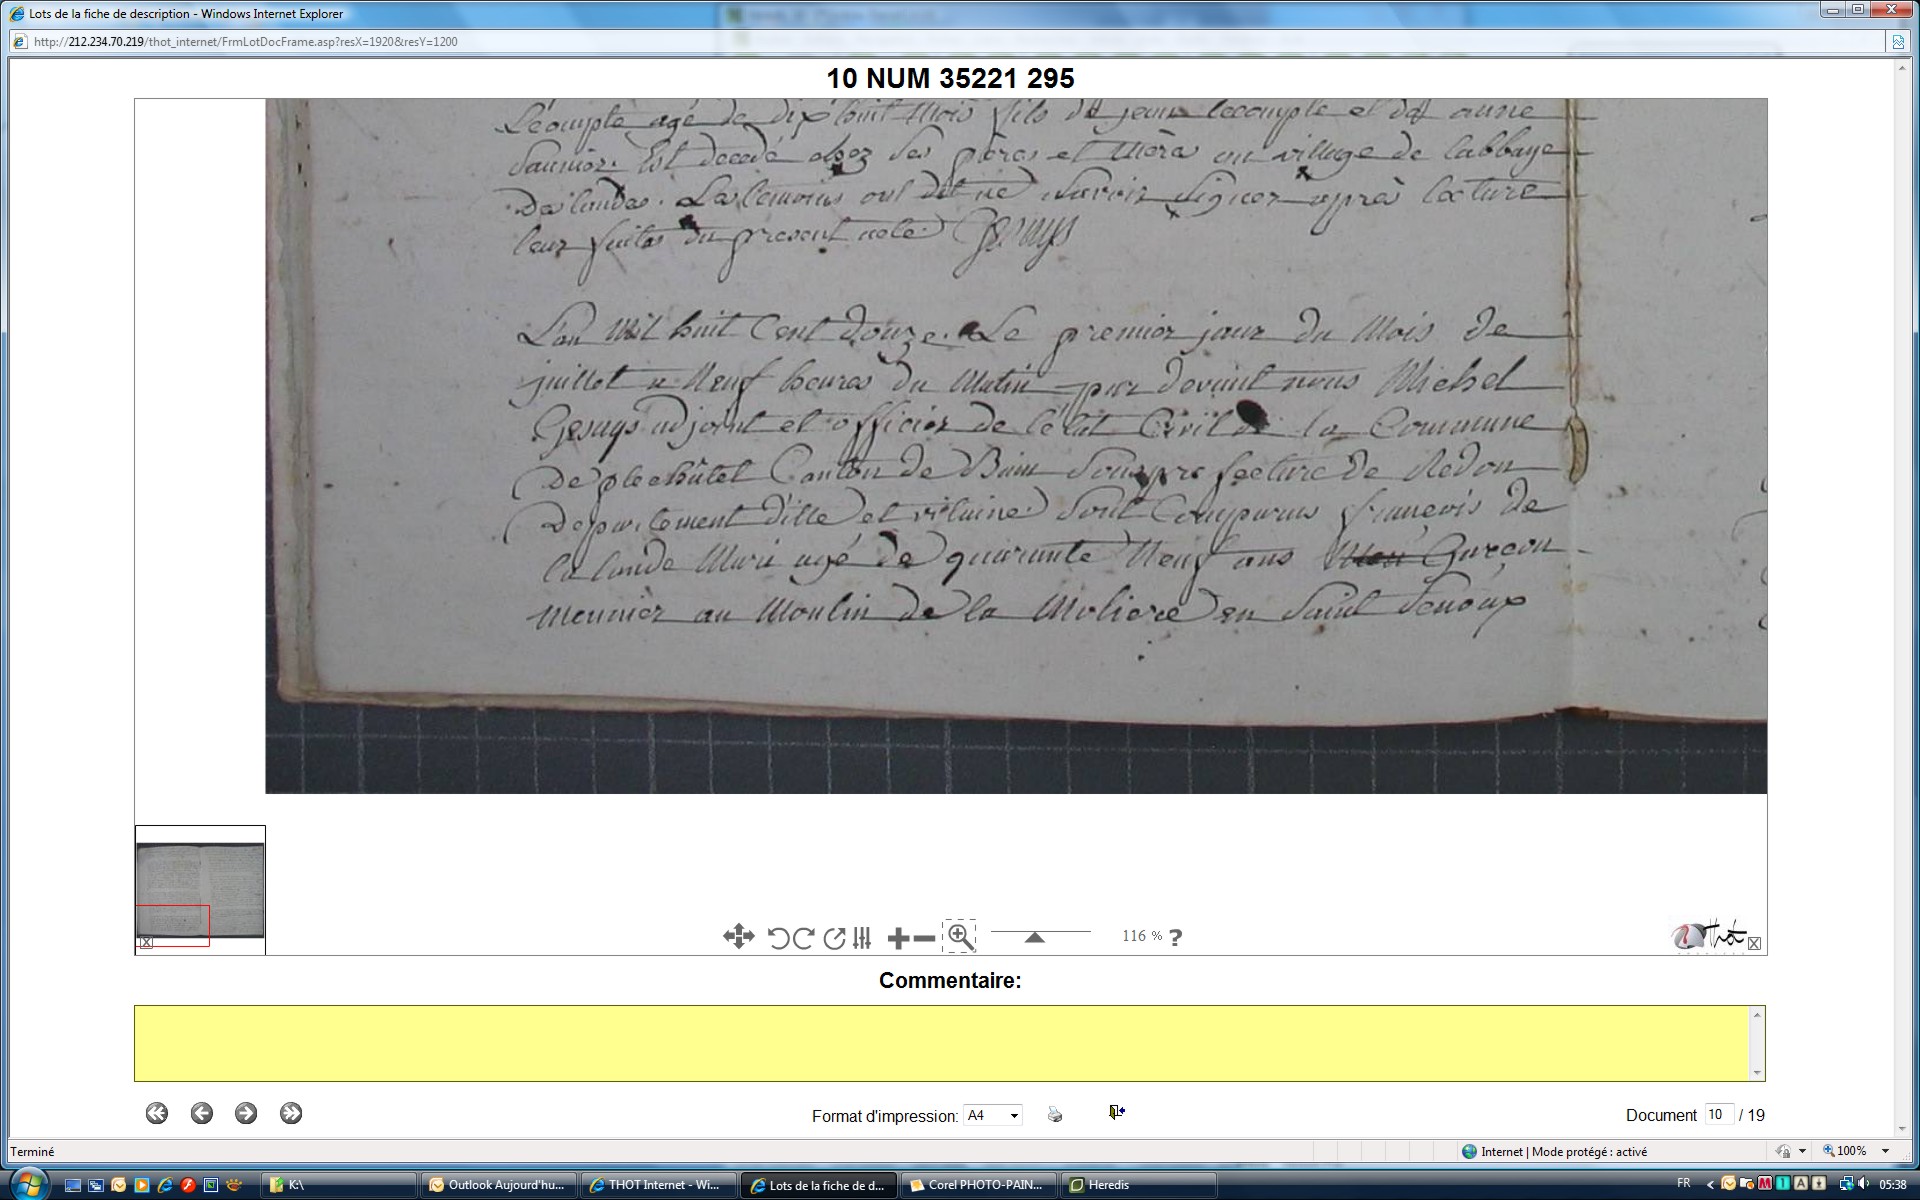 Lots de la fiche de description - Windows Internet Explorer
http://212.234.70.219/thot_internet/FrmLotDocFrame.asp?resX=1920&resY=1200
10 NUM 35221 295
Lecompte agé de dix huit mois fils de jean lecompte et de anne
Saunier. Est decedé chez ses pères et Mère au village de labbaye
Des landes. Les temoins ont dit ne Savoir Signer après lecture
leur faites du present acte Gesuys
L'an Mil huit Cent douze. Le premier jour du Mois de
juillet a Neuf heures du Matin par devant nous Michel
Gesuys adjoint et officier de l'état Civil de la Commune
De plechâtel Canton de Bain Sousprefecture De Redon
Departement d'ille et vilaine Sont Comparus françois De
la lande Mari agé de quarante Neuf ans Garçon
Meunier au Moulin de la Moliere en Saint Senoux
116 % ?
Thot
Commentaire:
Format d'impression: A4
Document 10 / 19
Terminé
Internet | Mode protégé : activé
100%
K:\
Outlook Aujourd'hu...
THOT Internet - Wi...
Lots de la fiche de d...
Corel PHOTO-PAIN...
Heredis
FR
05:38